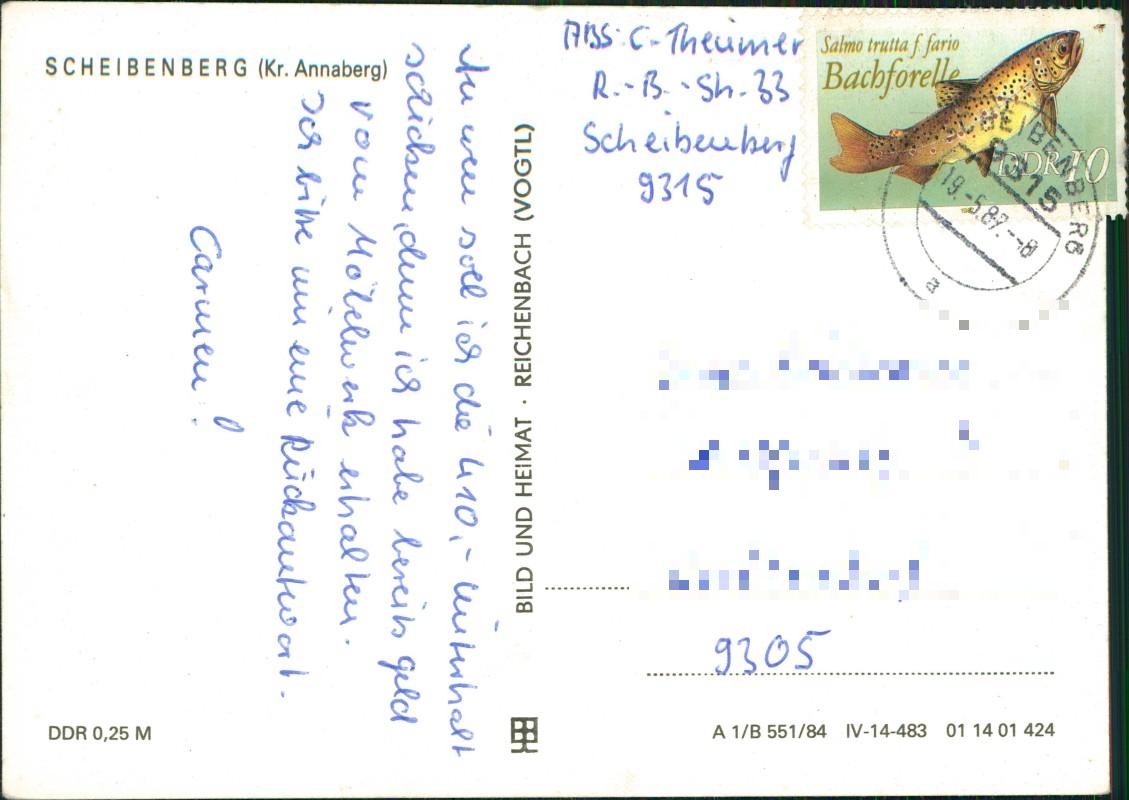 SCHEIBENBERG (Kr. Annaberg)
An wen soll ich die 410,- Unterhalt
schicken, denn ich habe bereits geld
vom Möbelwerk erhalten.
Ich bitte um eine Rückantwort.
Carmen!
BILD UND HEIMAT · REICHENBACH (VOGTL)
ABS: C. Theumer
R.-B.-Str. 33
Scheibenberg
9315
Salmo trutta f. fario
Bachforelle
DDR 10
SCHEIBENBERG
9315
19.-5.89.--8
a
9305
DDR 0,25 M
A 1/B 551/84 IV-14-483 01 14 01 424